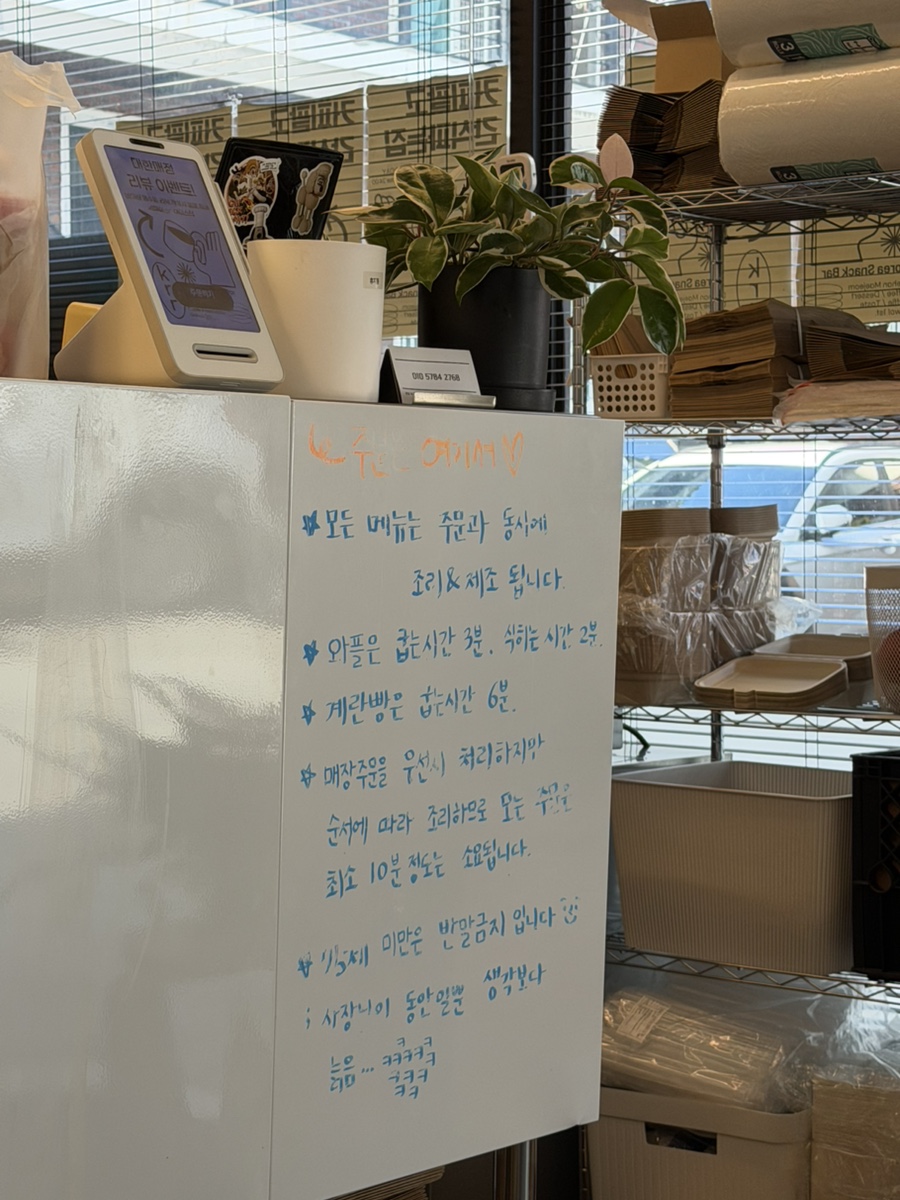 정매장만대
리뷰 이벤트!
010 5784 2768
커피팔고
간식파는집
커피팔고
간식파는집
Korea Snack Bar
주문 여기서♡
☆ 모든 메뉴는 주문과 동시에
조리&제조 됩니다.
☆ 와플은 굽는시간 3분, 식히는 시간 2분.
☆ 계란빵은 굽는시간 6분.
☆ 매장주문을 우선시 처리하지만
순서에 따라 조리하므로 모든 주문은
최소 10분 정도는 소요됩니다.
☆ 미만은 반말금지 입니다
; 사장님이 동안일뿐 생각보다
늙음... ㅋㅋㅋㅋㅋㅋㅋㅋㅋㅋㅋ